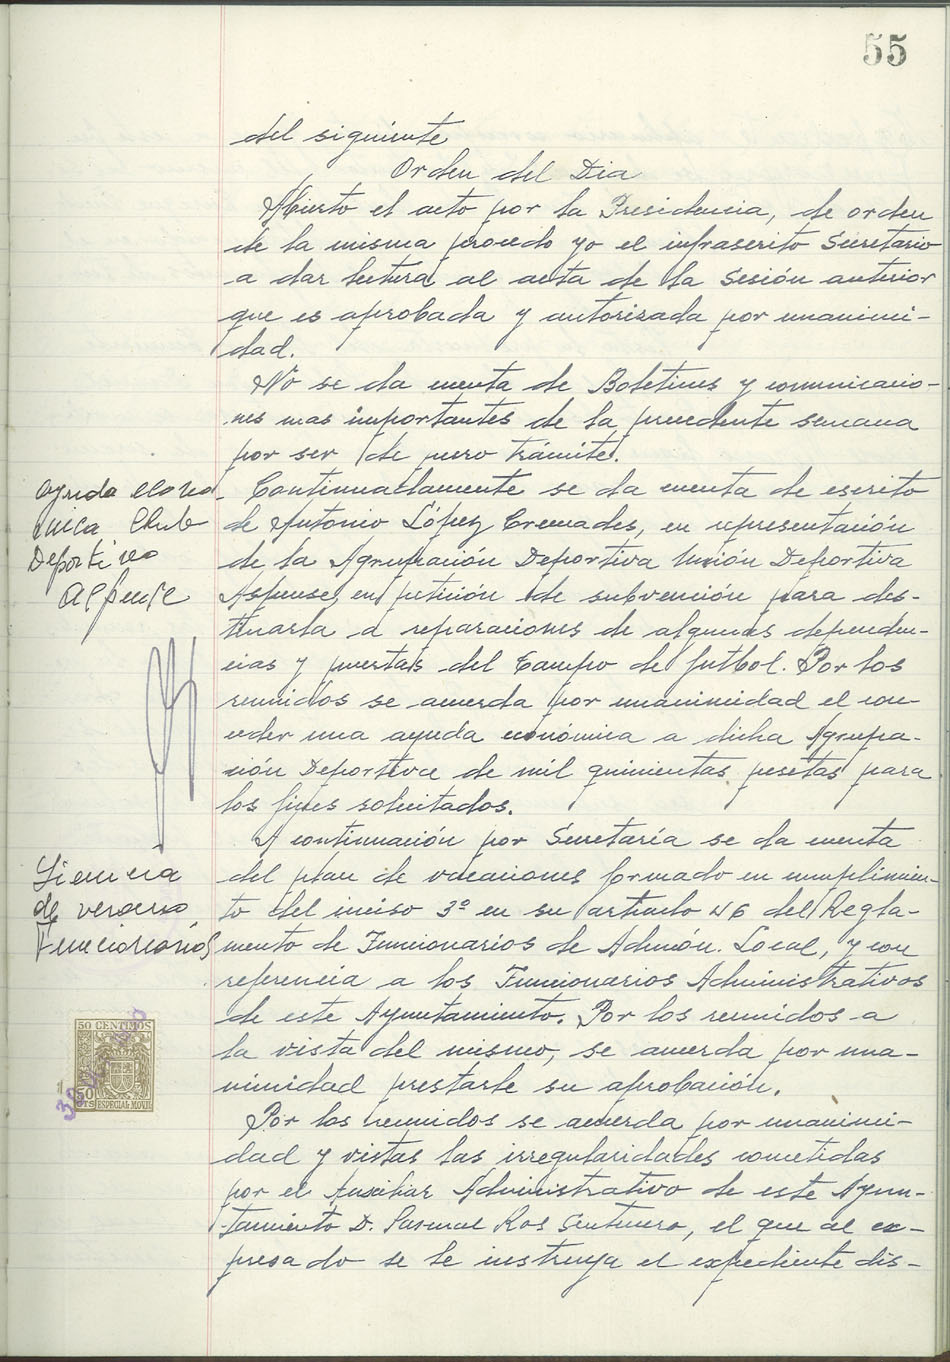 55
del siguiente
Orden del Dia
Abierto el acto por la Presidencia, de orden
de la misma procedo yo el infrascrito Secretario
a dar lectura al acta de la Sesión anterior
que es aprobada y autorizada por unanimi-
dad.
No se da cuenta de Boletines y comunicacio-
nes mas importantes de la precedente semana
por ser de puro trámite.
Ayuda econo
mica Club
Deportivo
Aspense
Continuadamente se da cuenta de escrito
de Antonio López Cremades, en representación
de la Agrupación Deportiva Unión Deportiva
Aspense, en petición de subvención para des-
tinarla a reparaciones de algunas dependen-
cias y puertas del Campo de futbol. Por los
reunidos se acuerda por unanimidad el con-
ceder una ayuda económica a dicha Agrupa-
ción Deportiva de mil quinientas pesetas para
los fines solicitados.
Licencia
de verano
Funcionarios
A continuación por Secretaría se da cuenta
del plan de vacaciones formado en cumplimien-
to del inciso 3º en su artículo 46 del Regla-
mento de Funcionarios de Admón. Local, y con
referencia a los Funcionarios Administrativos
de este Ayuntamiento. Por los reunidos a
la vista del mismo, se acuerda por una-
nimidad prestarle su aprobación.
50 CENTIMOS
50
CTS
ESPECIAL MOVIL
Por los reunidos se acuerda por unanimi-
dad y vistas las irregularidades cometidas
por el Auxiliar Administrativo de este Ayun-
tamiento D. Pascual Ros Sentenero, el que al ex-
presado se le instruya el expediente dis-